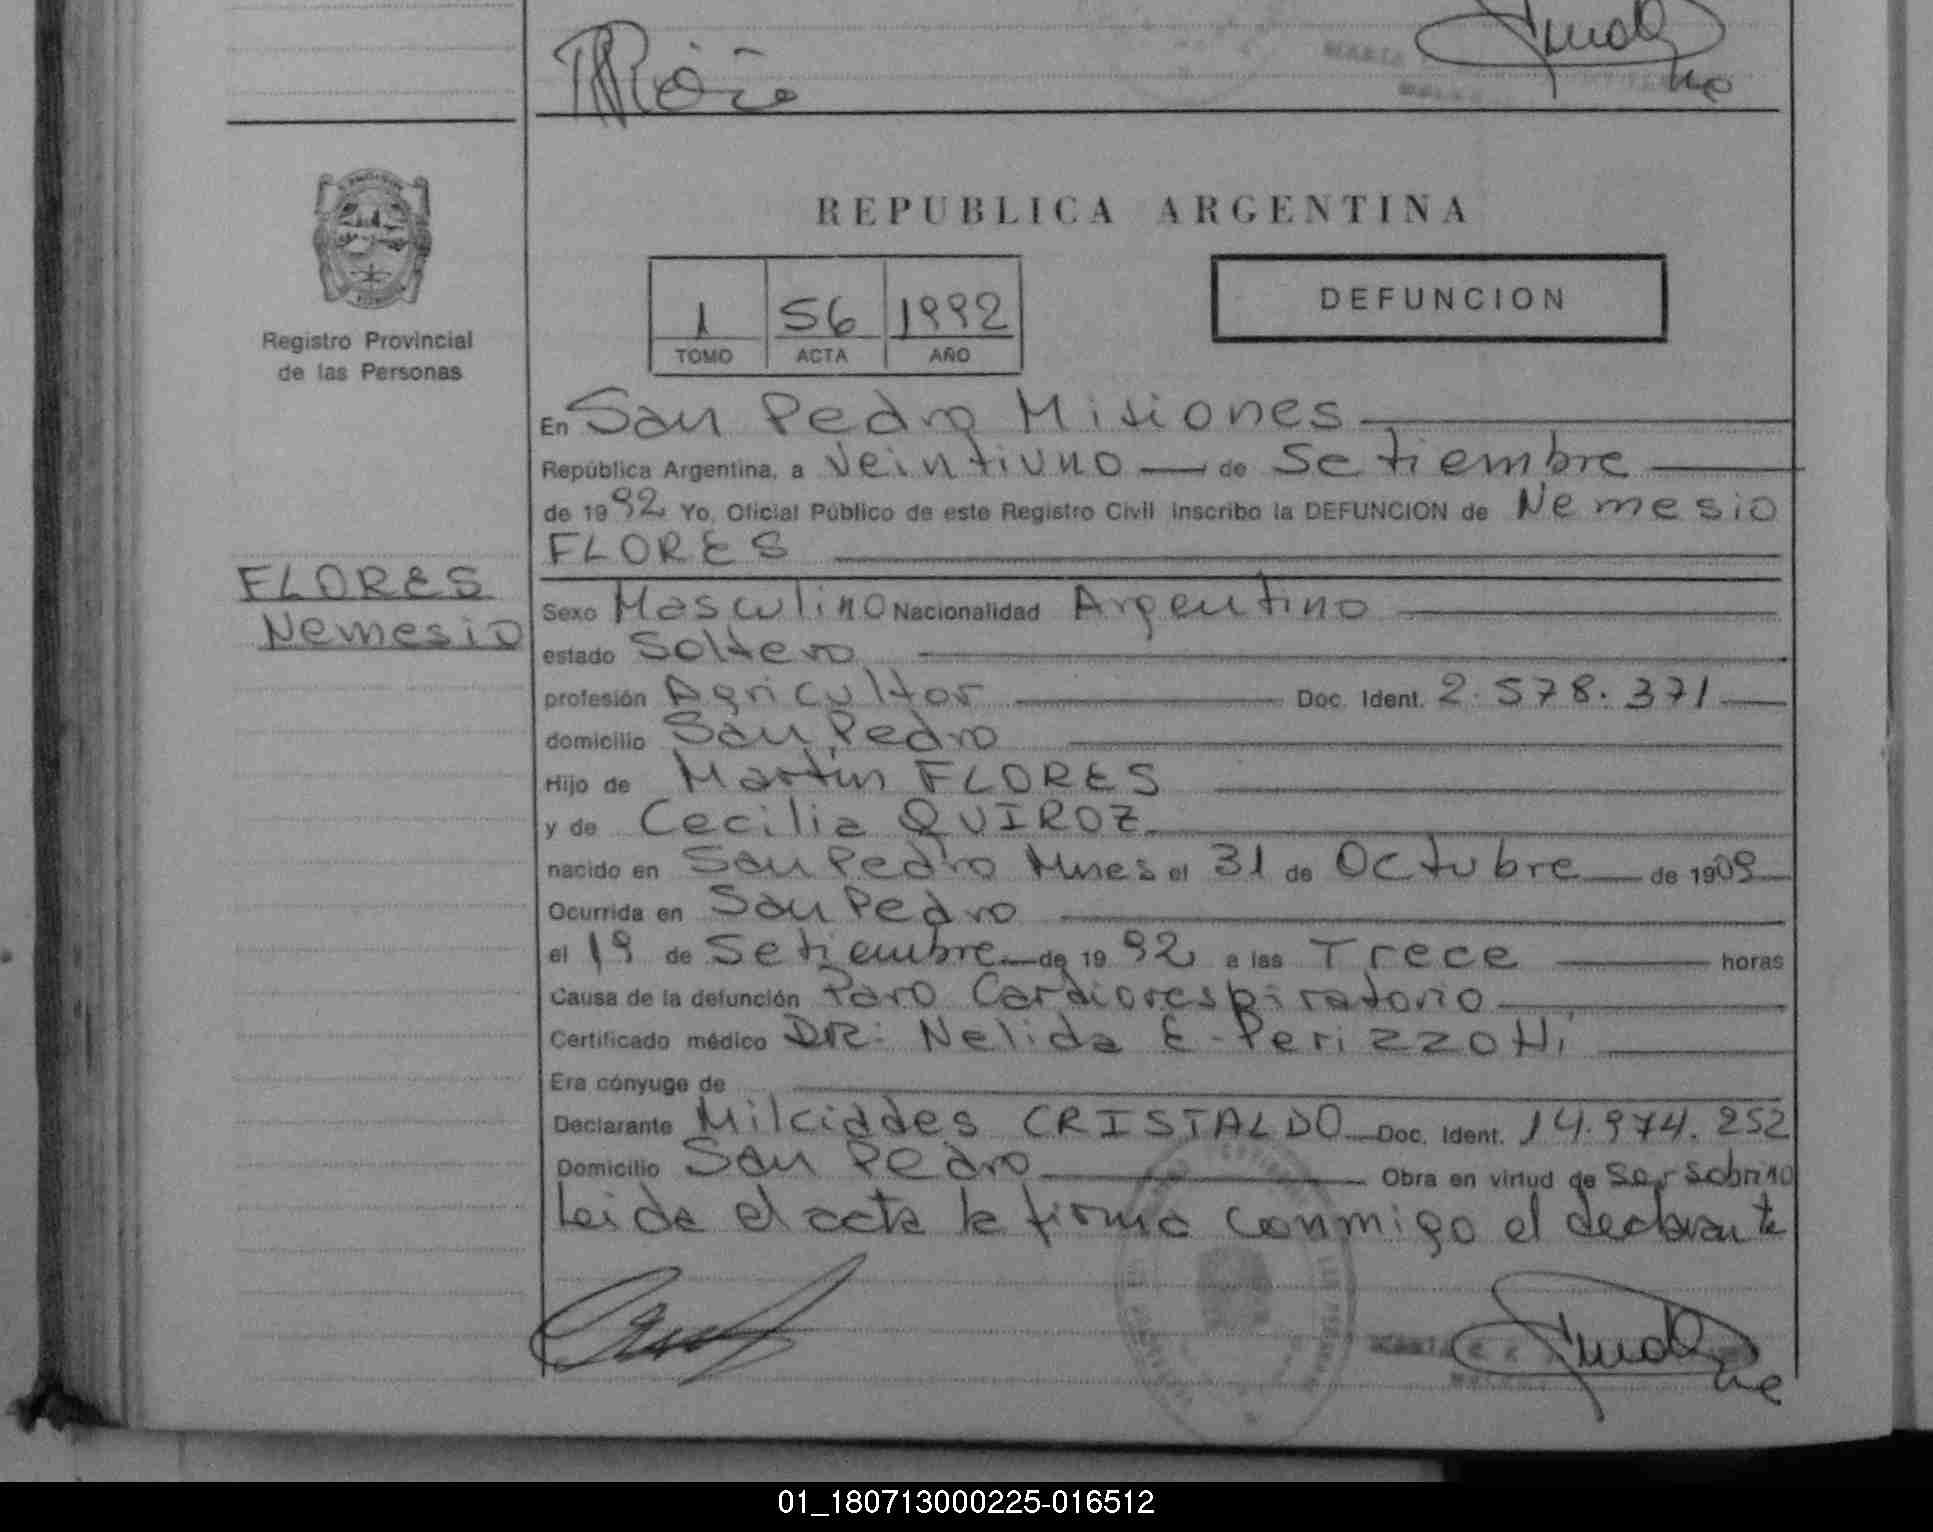 REPUBLICA ARGENTINA
1 56 1992
TOMO ACTA AÑO
DEFUNCION
Registro Provincial
de las Personas
En San Pedro Misiones
República Argentina, a Veintiuno de Setiembre
de 1992 Yo, Oficial Público de este Registro Civil inscribo la DEFUNCION de Nemesio
FLORES
FLORES
Nemesio
Sexo Masculino Nacionalidad Argentino
estado Soltero
profesión Agricultor Doc. Ident. 2.578.371
domicilio San Pedro
Hijo de Martin FLORES
y de Cecilia QUIROZ
nacido en San Pedro Mnes el 31 de Octubre de 1909
Ocurrida en San Pedro
el 19 de Setiembre de 1992 a las Trece horas
Causa de la defunción Paro Cardiorespiratorio
Certificado médico DR: Nelida E. Perizzotti
Era cónyuge de
Declarante Milciades CRISTALDO Doc. Ident. 14.974.252
Domicilio San Pedro Obra en virtud de Ser sobrino
Leida el acta la firma conmigo el declarante
01_180713000225-016512